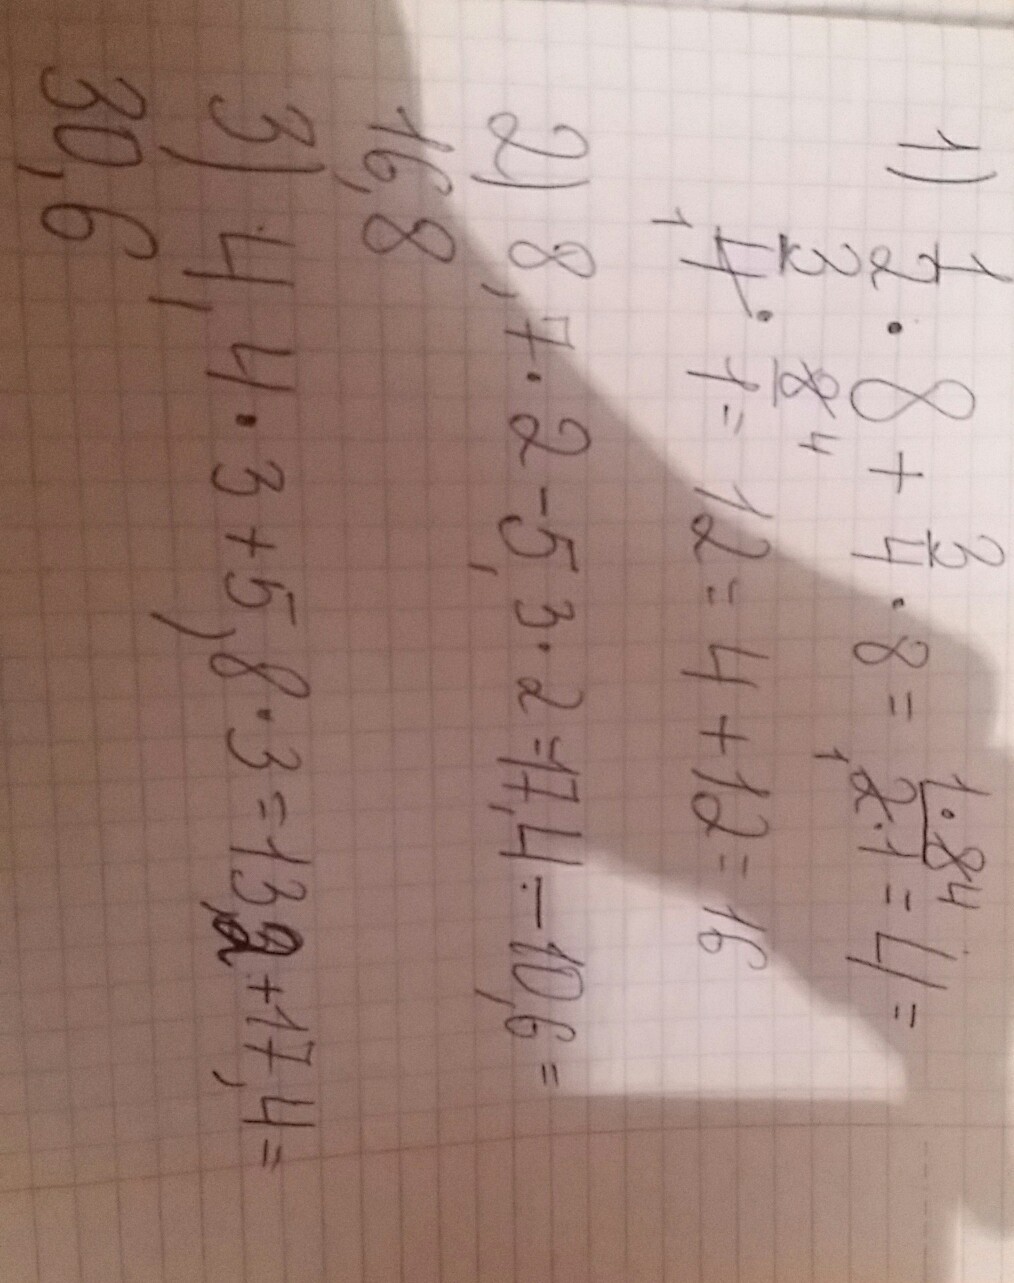 1) 1/2 · 8 + 3/4 · 8 = 1·8 4/1 2·1 = 4 =
3/1 4 · 8 4/1 = 12 = 4 + 12 = 16
2) 8,7 · 2 - 5,3 · 2 = 17,4 - 10,6 =
16,8
3) 4,4 · 3 + 5,8 · 3 = 13,2 + 17,4 =
30,6